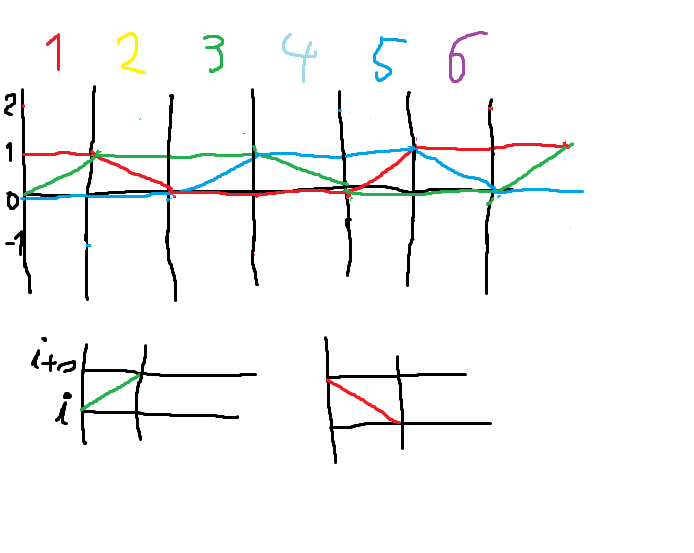 1 2 3 4 5 6
2
1
0
-1
i+n
i